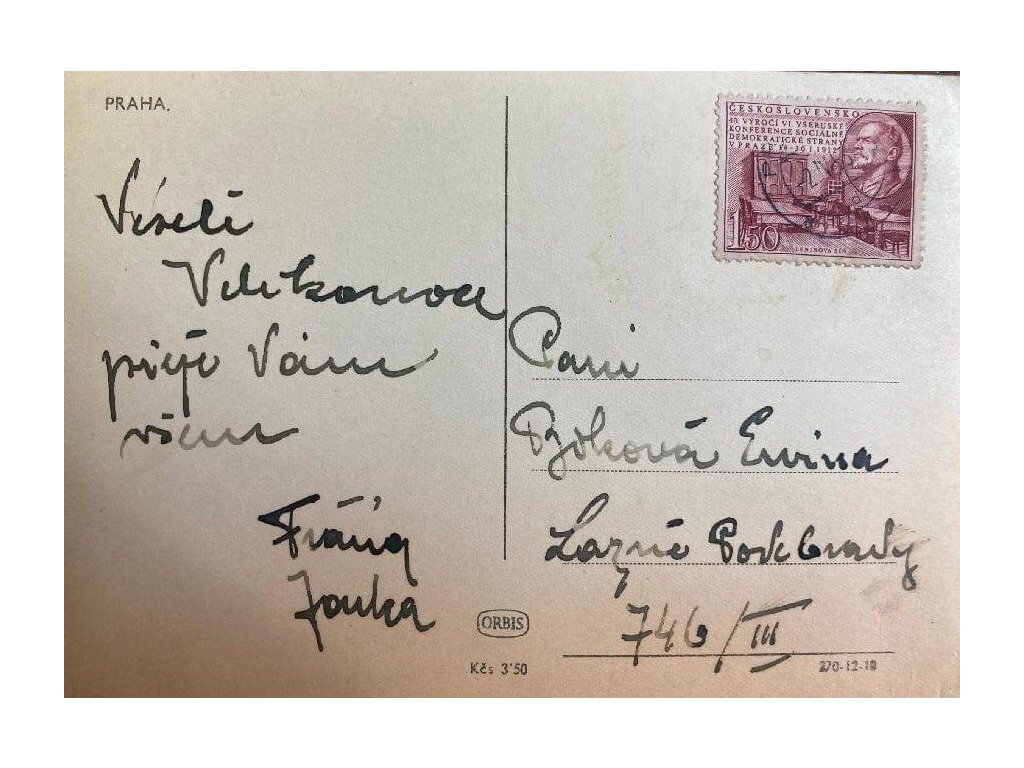 PRAHA.
Veselé
Velikonoce
přeje Vám
všem
Fráňa
Jouka
ČESKOSLOVENSKO
40. VÝROČÍ VI. VŠERUSKÉ
KONFERENCE SOCIÁLNĚ
DEMOKRATICKÉ STRANY
V PRAZE 18-30.I.1912
1,50
LENINOVA SÍŇ
Paní
Ervina
Lázně Poděbrady
746/III
ORBIS
Kčs 3'50
270-12-10